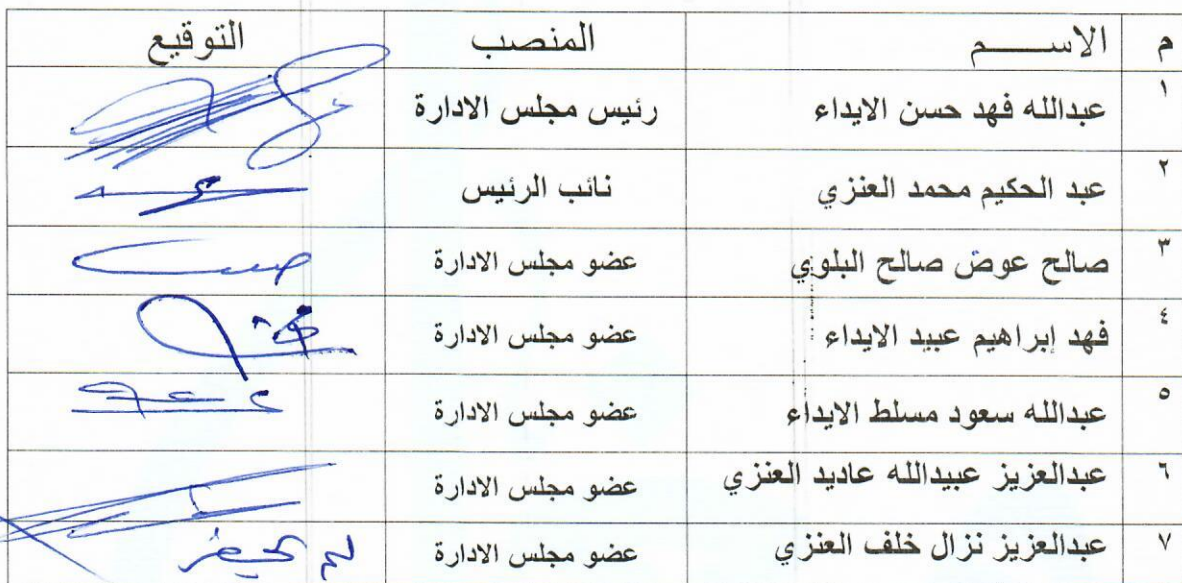 م الاســـــم المنصب التوقيع
١ عبدالله فهد حسن الايداء رئيس مجلس الادارة
٢ عبد الحكيم محمد العنزي نائب الرئيس
٣ صالح عوض صالح البلوي عضو مجلس الادارة
٤ فهد إبراهيم عبيد الايداء عضو مجلس الادارة
٥ عبدالله سعود مسلط الايداء عضو مجلس الادارة
٦ عبدالعزيز عبيدالله عاديد العنزي عضو مجلس الادارة
٧ عبدالعزيز نزال خلف العنزي عضو مجلس الادارة